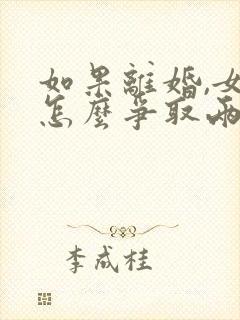 如果離婚,女
怎麼爭取兩
李成桂